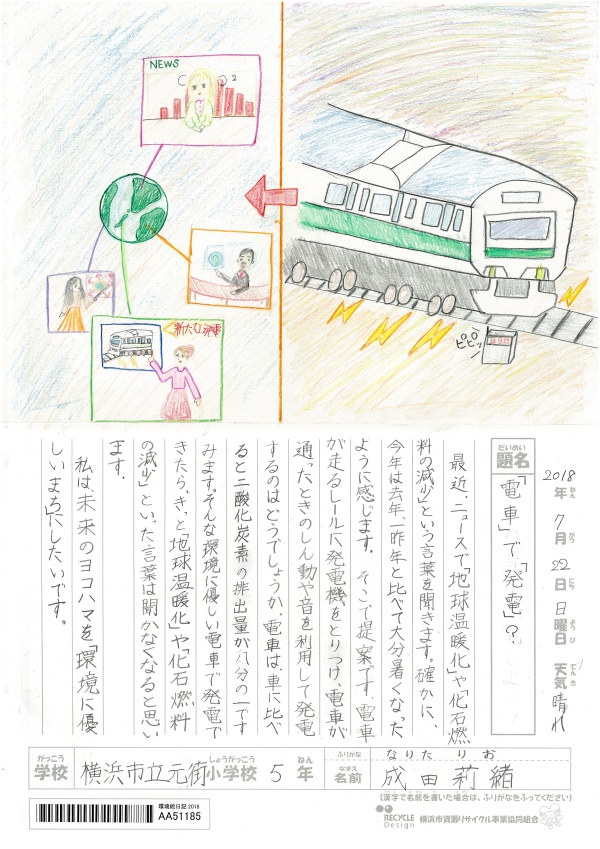 NEWS
CO2
新たな発電
ピピピッ
2018年ねん7月がつ22日にち日曜日ようび天気てんき晴れ
だいめい
題名
「電車」で「発電」?
最近、ニュースで「地球温暖化」や「化石燃
料の減少」という言葉を聞きます。確かに、
今年は去年、一昨年と比べて大分暑くなった
ように感じます。そこで提案です。電車
が走るレールに発電機をとりつけ、電車が
通ったときのしん動や音を利用して発電
するのはどうでしょうか。電車は、車に比べ
ると二酸化炭素の排出量が八分の一です
みます。そんな環境に優しい電車で発電で
きたら、きっと「地球温暖化」や「化石燃料
の減少」といった言葉は聞かなくなると思い
ます。
私は未来のヨコハマを「環境に優
しいまち」にしたいです。
がっこう
学校
横浜市立元街
しょうがっこう
小学校
5
ねん
年
ふりがな
なりたりお
なまえ
名前
成田莉緒
(漢字で名前を書いた場合は、ふりがなをふってください)
環境絵日記2018
AA51185
RECYCLE
Design
横浜市資源リサイクル事業協同組合